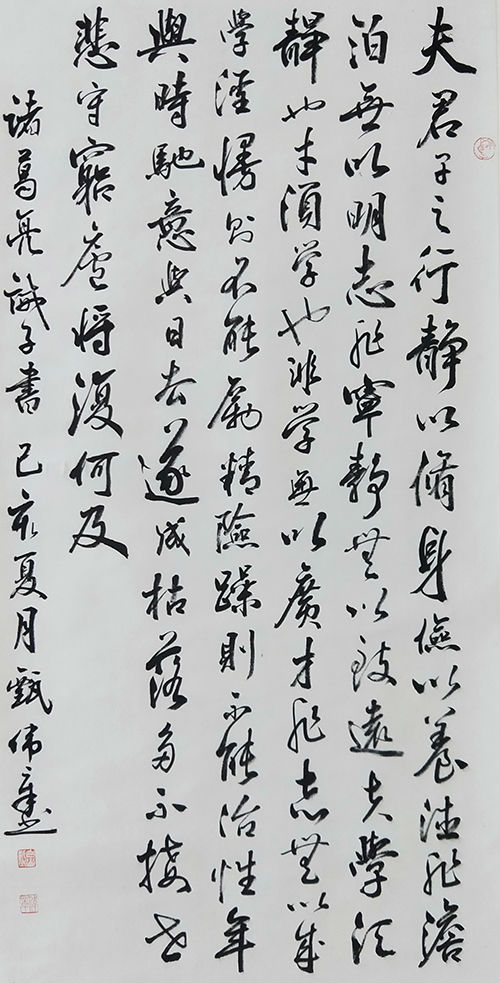 夫君子之行静以脩身儉以养德非澹
泊無以明志非寧静無以致遠夫學須
静也才須学也非学無以廣才非志無以成
学淫慢則不能勵精險躁則不能治性年
與時馳意與日去遂成枯落多不接世
悲守窮廬將復何及
諸葛亮誡子書己亥夏月甄伟